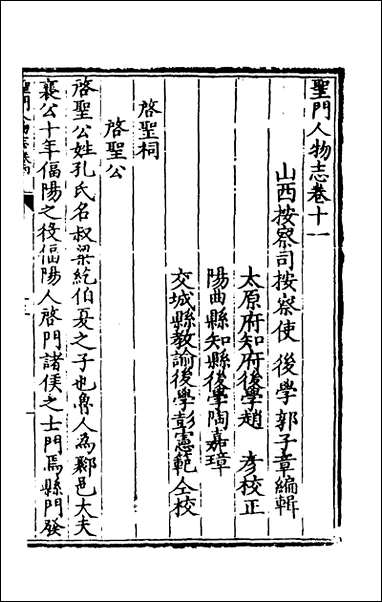 聖門人物志卷十一
山西按察司按察使後學郭子章編輯
太原府知府後學趙彦校正
陽曲縣知縣後學陶嘉璋
交城縣教諭後學彭憲範仝校
啓聖祠
啓聖公
啓聖公姓孔氏名叔梁紇伯夏之子也魯人為鄹邑大夫
襄公十年偪陽之役偪陽人啓門諸侯之士門焉縣門發
聖門人物志卷